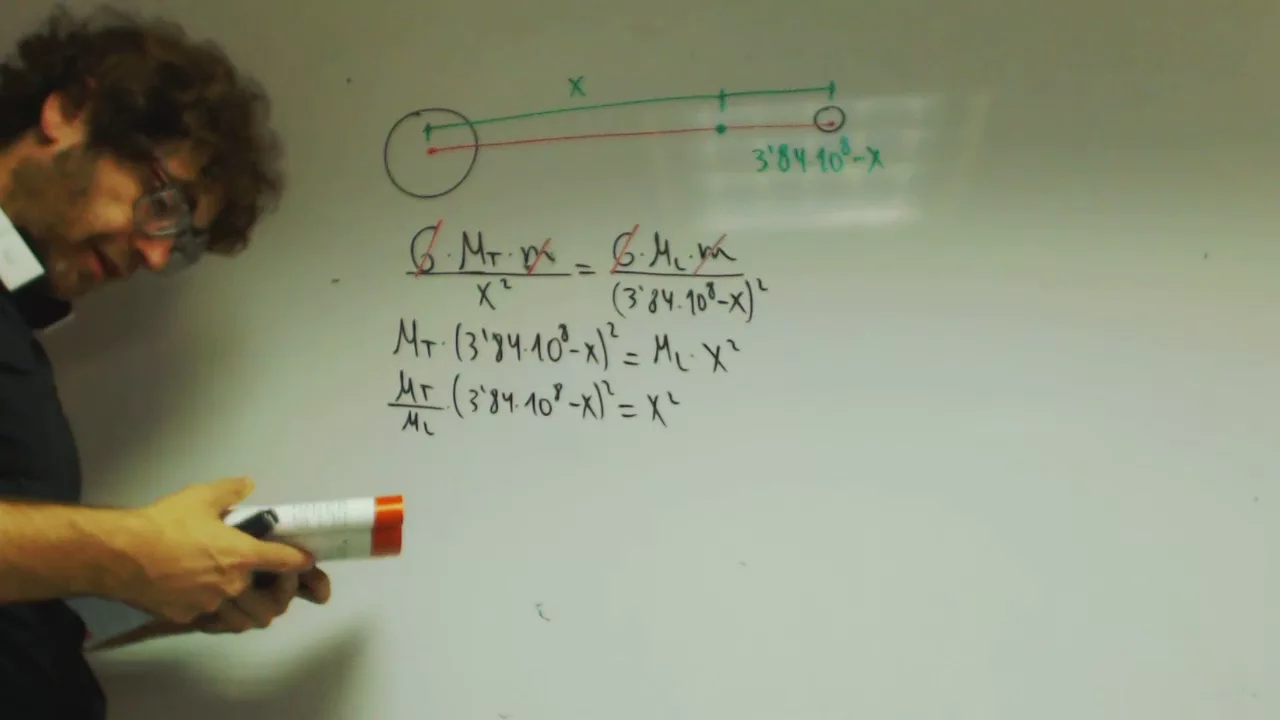 x
3'84·10⁸-x
G·M_T·m/x² = G·M_L·m/(3'84·10⁸-x)²
M_T·(3'84·10⁸-x)² = M_L·x²
M_T/M_L·(3'84·10⁸-x)² = x²